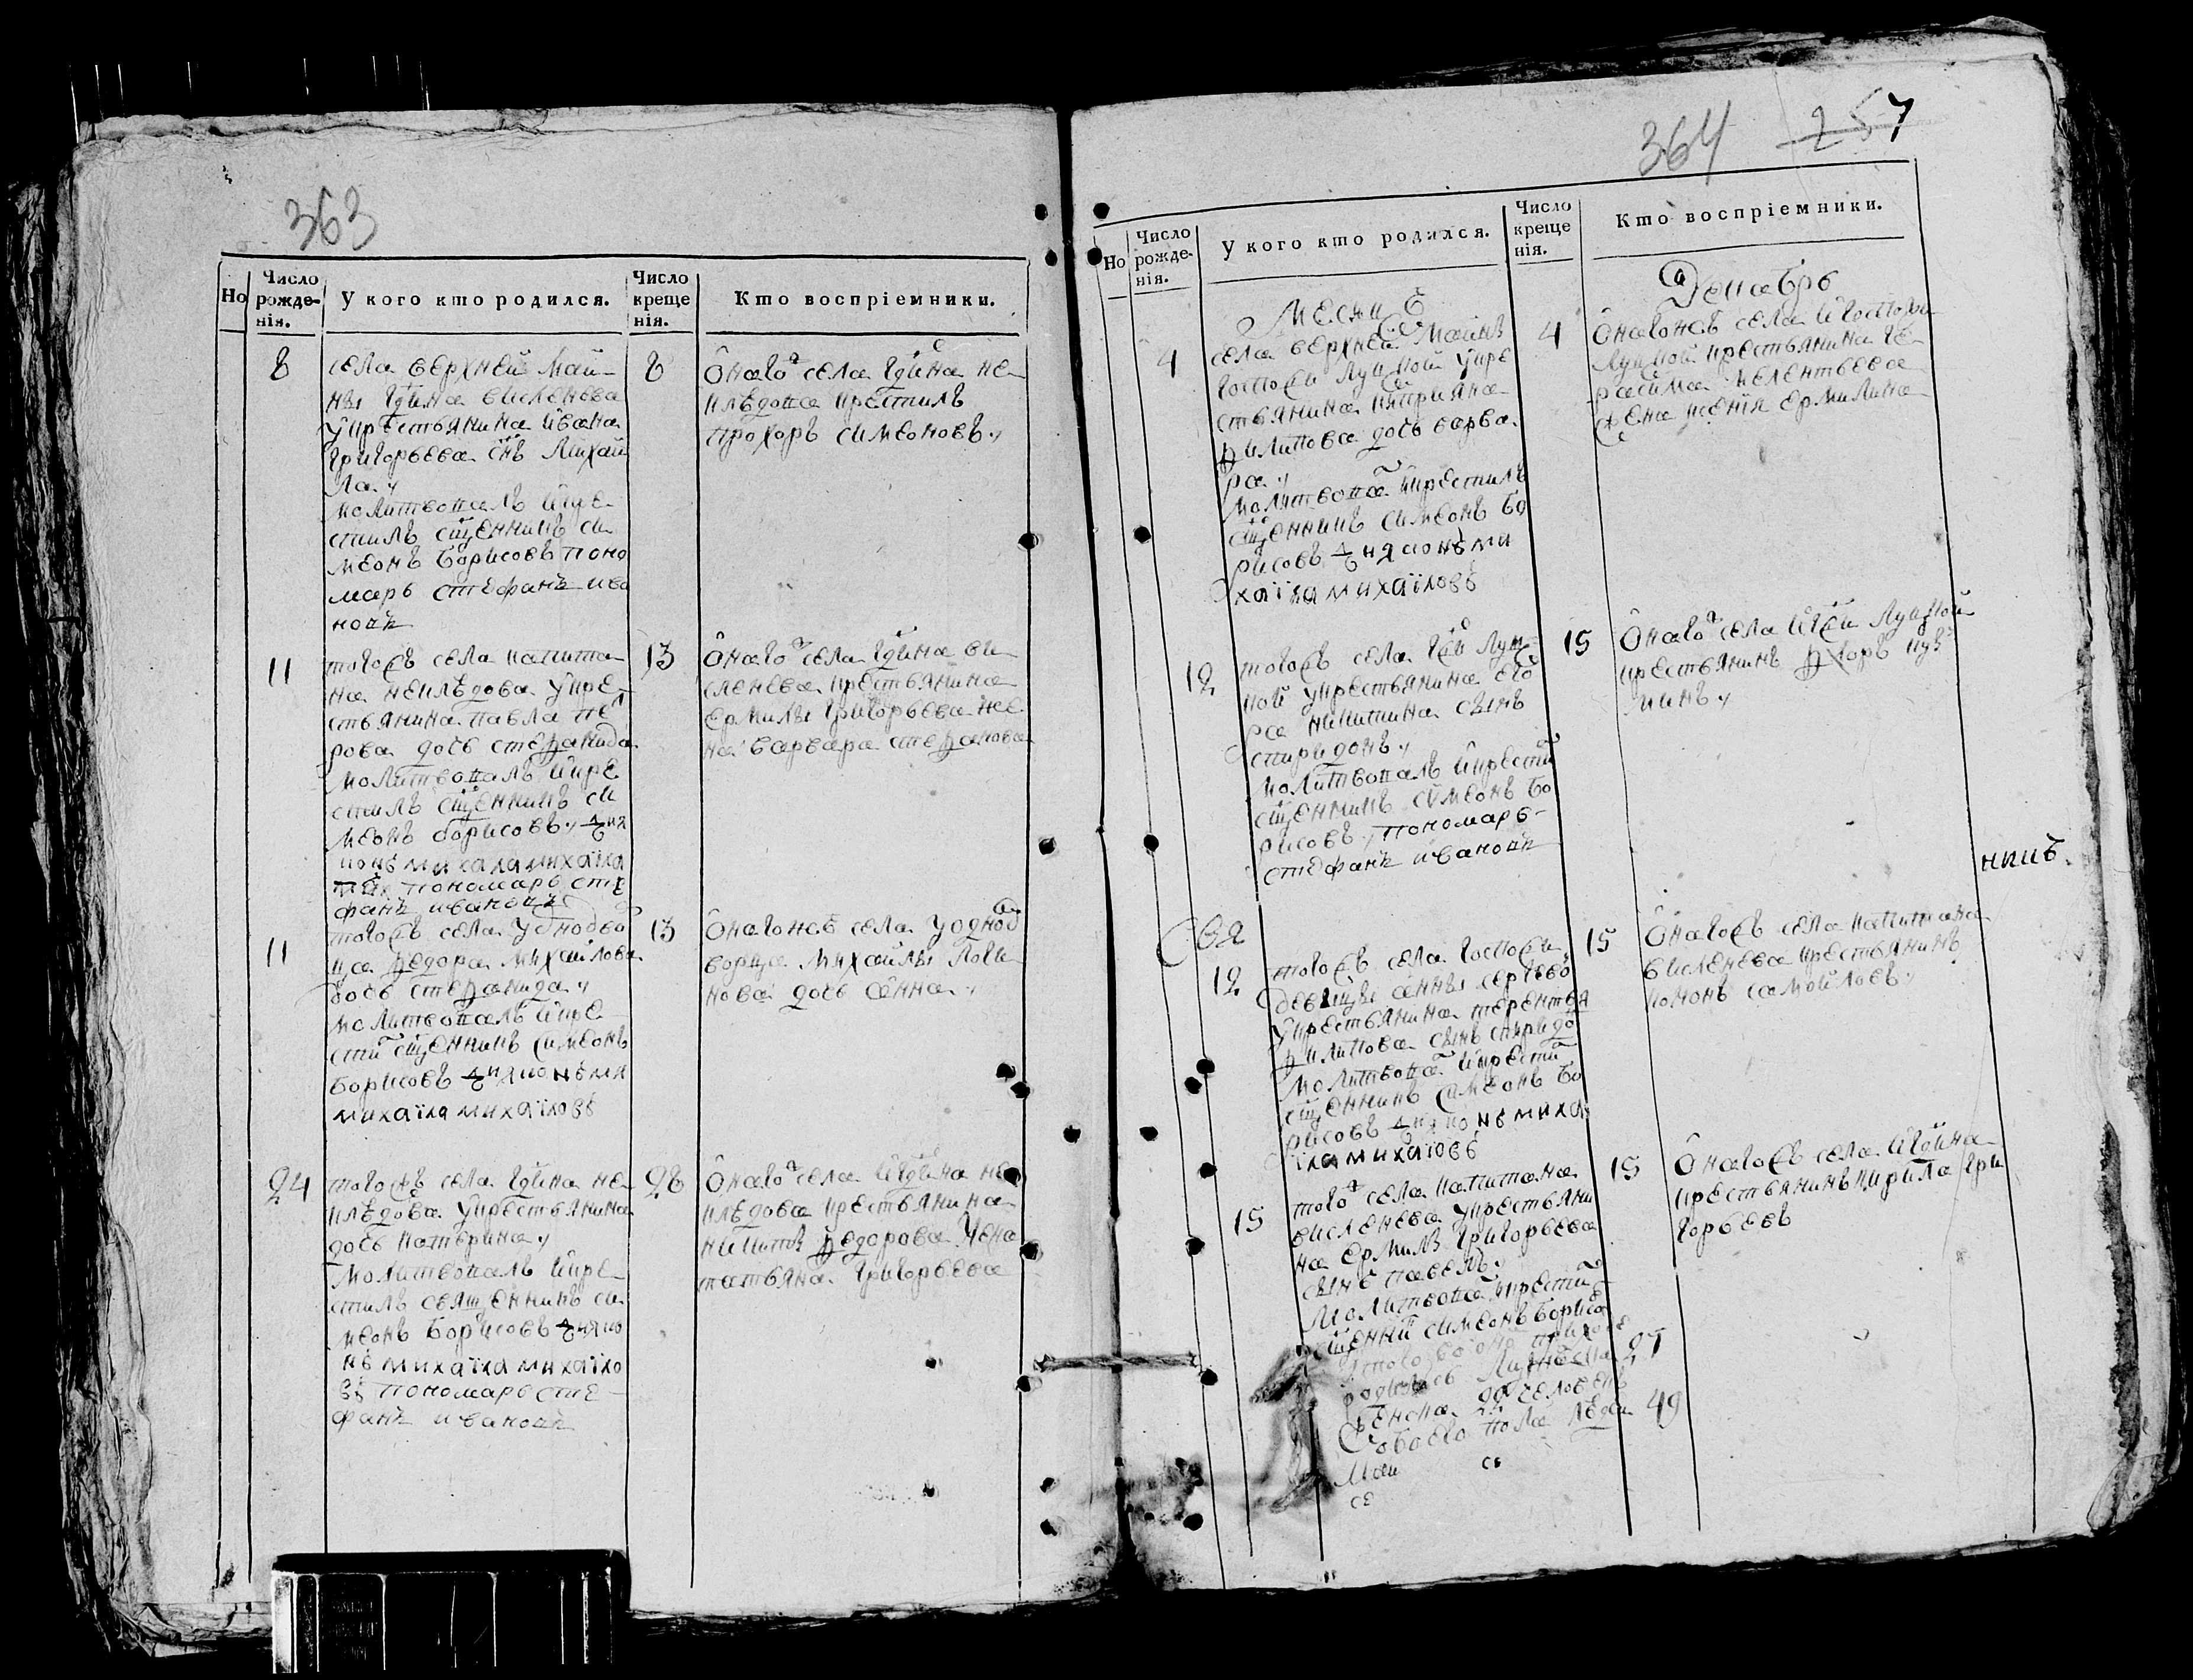 363
Но
Число рожденія.
У кого кто родился.
Число крещенія.
Кто воспріемники.
8
села верхней май
ны гдина висленева
укрестьянина ивана
григорьева снъ михаи
ла
молитвовалъ икре
стилъ сщенникъ си
меонъ борисовъ поно
марь стефанъ ива
новъ
8
онаго села гдина не
клѣдова крестилъ
прохоръ симеоновъ
11
тогожъ села капита
на неклѣдова укре
стьянина павла пет
рова дочь стефанида
молитвовалъ икре
стилъ сщенникъ си
меонъ борисовъ дия
конъ михаила михаила
пономарь сте
фанъ ивановъ
13
онаго села гдина ви
сленева крестьянина
ермилы григорьева же
на варвара стефанова
11
тогожъ села уоднодво
рца федора михаилова
дочь стефанида
молитвовалъ икре
стил сщенникъ симеонъ
борисовъ дияконъ ми
михаила михаиловъ
13
онагожъ села уоднод
ворца михайлы логи
нова дочь анна
24
тогожъ села гдина не
клѣдова укрестьянина
дочь катерина
молитвовалъ икре
стилъ священникъ си
меонъ борисовъ дияко
нъ михаила михаило
въ пономарь сте
фанъ ивановъ
28
онаго села игдина не
клѣдова крестьянина
никиты федорова жена
татьяна григорьева
364 257
Но
Число рожденія.
У кого кто родился.
Число крещенія.
Кто воспріемники.
Месяц Декабрь
4
села верхней майны
госпожи луцкой укре
стьянина киприяна
филипова дочь варва
ра
молитвова икрестилъ
сщенникъ симеонъ бо
рисовъ дияконъ ми
хаила михаиловъ
4
онагожъ села игоспожи
луцкой крестьянина ге
расима мелентьева
жена ксения ермилина
12
тогожъ села гсжи луц
кой укрестьянина его
ра никитина сынъ
спиридонъ
молитвовалъ икрести
сщенникъ симеонъ бо
рисовъ пономарь
стефанъ ивановъ
15
онаго села игсжи луцкой
крестьянинъ федоръ куз
минъ
12
тогожъ села госпожи
девицы анны сергеево
укрестьянина терентья
филипова сынъ спиридо
молитвова икрести
сщенникъ симеонъ бо
рисовъ дияконъ миха
ила михаиловъ
15
онагожъ села капитана
висленева крестьянинъ
самойловъ
15
того села капитана
висленева укрестьяни
на ермилы григорьева
сынъ павелъ
молитвова икрести
сщенни симеонъ борисо
15
онагожъ села игдина
крестьянинъ кирила гри
горьевъ
родилось мужеска 27
женска 22 человекъ
обоего пола людей 49
никъ.